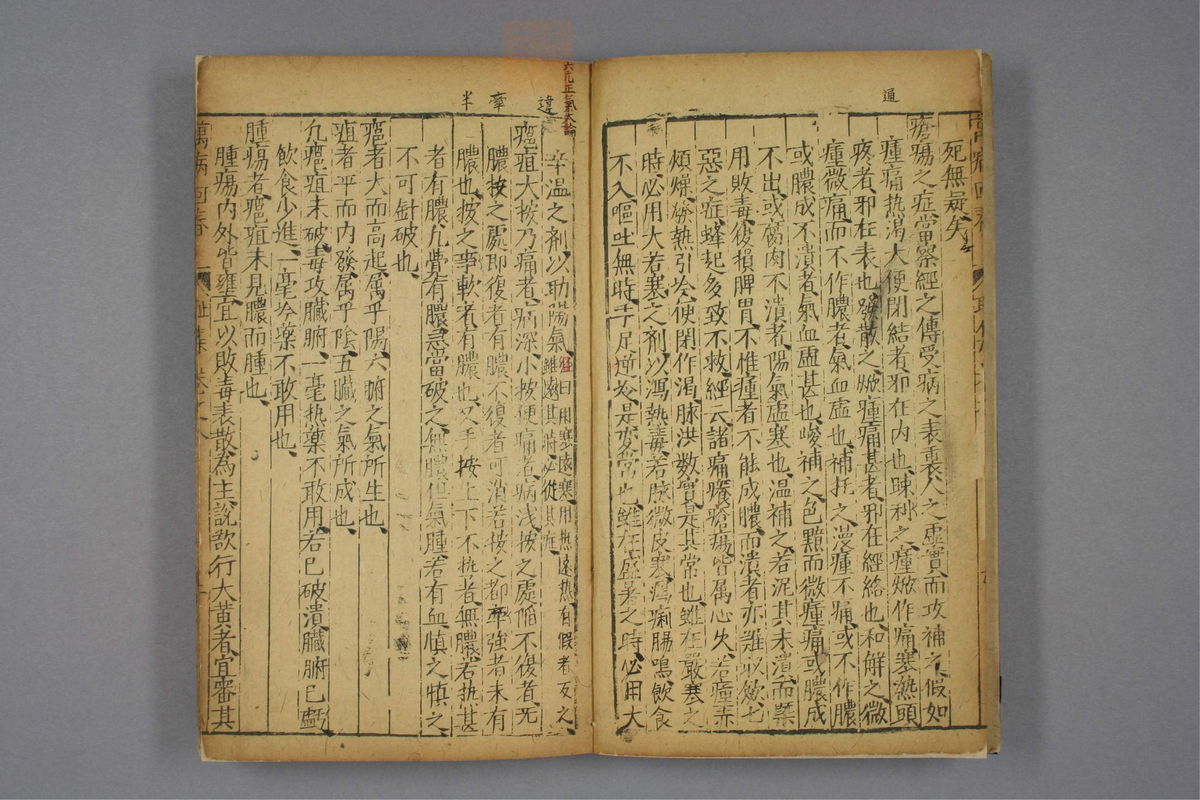 通
死無疑矣
瘡瘍之症當察經之傳受病之表裏人之虛實而攻補之假如
腫痛热渴大便閉結者邪在内也踈利之腫焮作痛寒熱頭
疼者邪在表也發散之焮腫痛甚者邪在經絡也和解之微
腫微痛而不作膿者氣血虛也補托之漫腫不痛或不作膿
或膿成不潰者氣血虛甚也峻補之色黯而微腫痛或膿成
不出或腐肉不潰者陽氣虛寒也温補之若泥其未潰而槩
用敗毒復損脾胃不惟腫者不能成膿而潰者亦難收斂七
惡之症蜂起多致不救經云諸痛癢瘡瘍皆属心火若腫赤
煩燥發熱引冷便閉作渴脉洪数實是其常也雖在嚴寒之
時必用大苦寒之剂以瀉熱毒若脉微皮寒瀉痢腸鳴飲食
不入嘔吐無時手足逆冷是变常也雖在盛暑之時必用大
六元正氣大論
違
率
半
辛温之剤以助陽氣
經曰用寒遠寒用热遠热有假者反之
雖違其時必從其症
瘡疽大按乃痛者病深小按便痛者病浅按之處陥不復者无
膿按之處即復者有膿不復者可消若按之都牢強者未有
膿也按之半軟者有膿也又手按上下不热者無膿若热甚
者有膿凡覺有膿急當破之無膿但氣腫若有血慎之慎之
不可針破也
瘡者大而高起属乎陽六腑之氣所生也
疽者平而内發属乎陰五臓之氣所成也
凡瘡疽未破毒攻臓腑一毫热藥不敢用若已破潰臓腑已虧
飲食少進一毫冷藥不敢用也
腫瘍者瘡疽未見膿而腫也
腫瘍内外皆壅宜以敗毒表散為主說欲行大黄者宜審其
萬病回春
卷之八